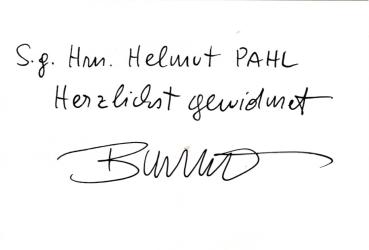 S.g. Hrn. Helmut PAHL
Herzlichst gewidmet